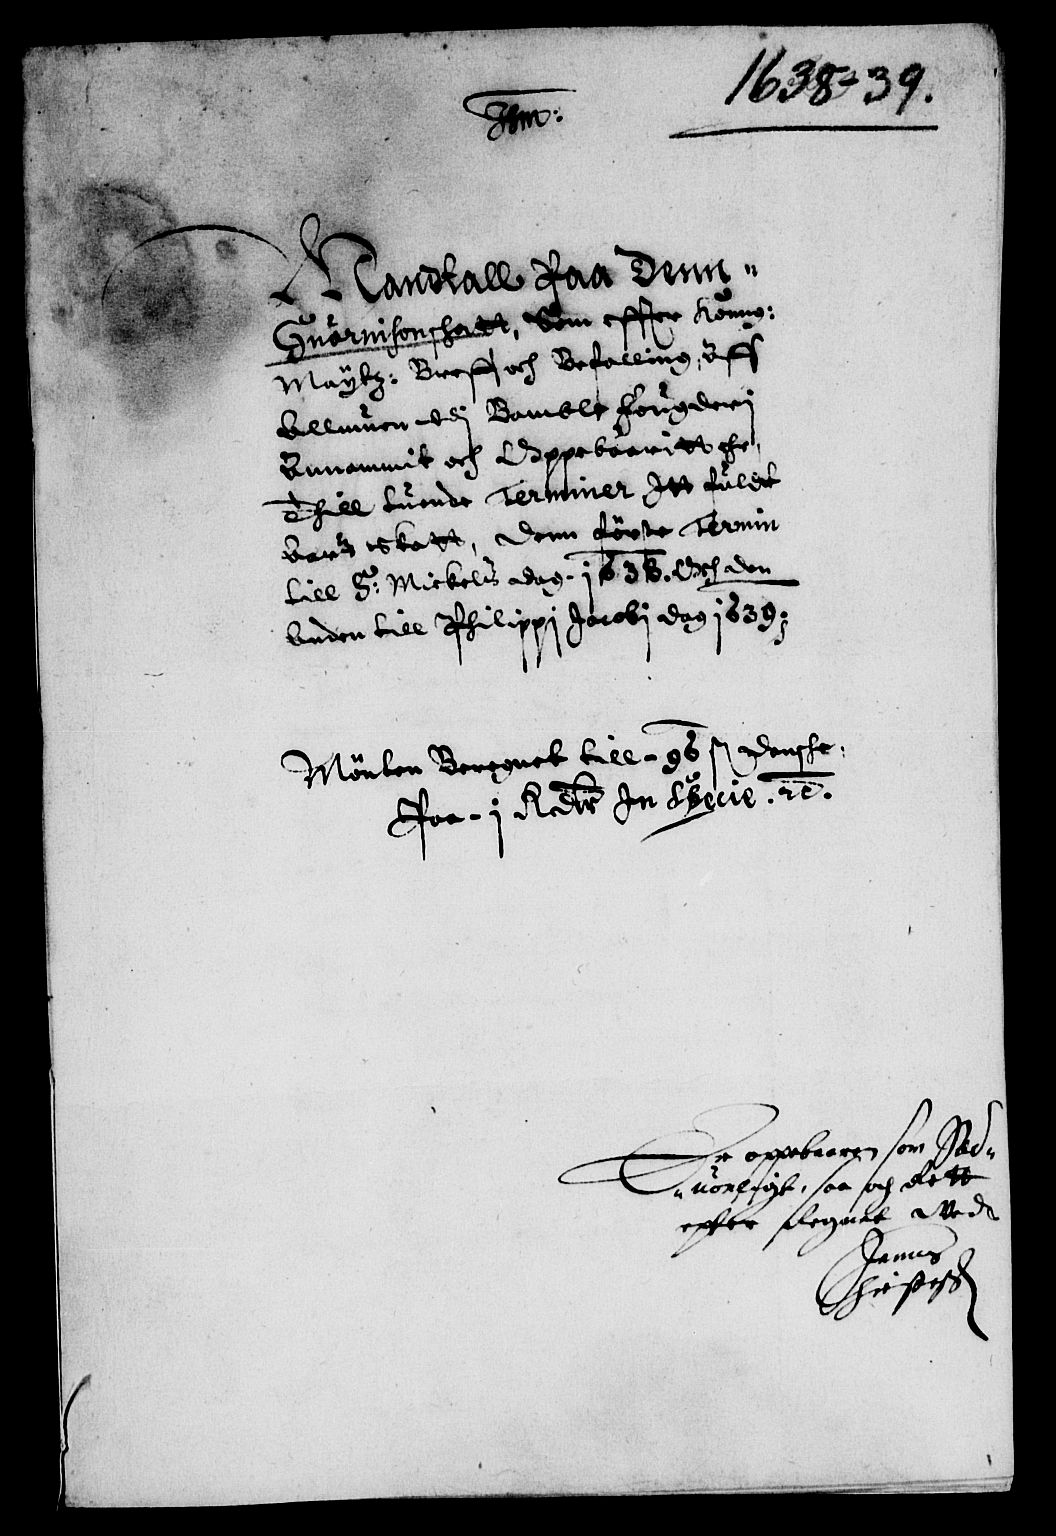 1638-39.
Ihm:
Mandtall Paa Denn
Guarnisonshatt, Som effter Könng:
Maytz: Breff och Befalling, Aff
Allmuen udj Bamble fougderj
Annammit och Oppebaarit
Thill tuende Terminer Itt fuldt
skatt, Denn förste Termin
till S: Mickels dag. 1638. Och den
Anden till Philippj Jacobj dag 1639:
Mönten Beregnet till 96 ß danske.
Paa 1 Rdr In Specie. rc.
oppebaaren som
saa och
efter Regnet Ved